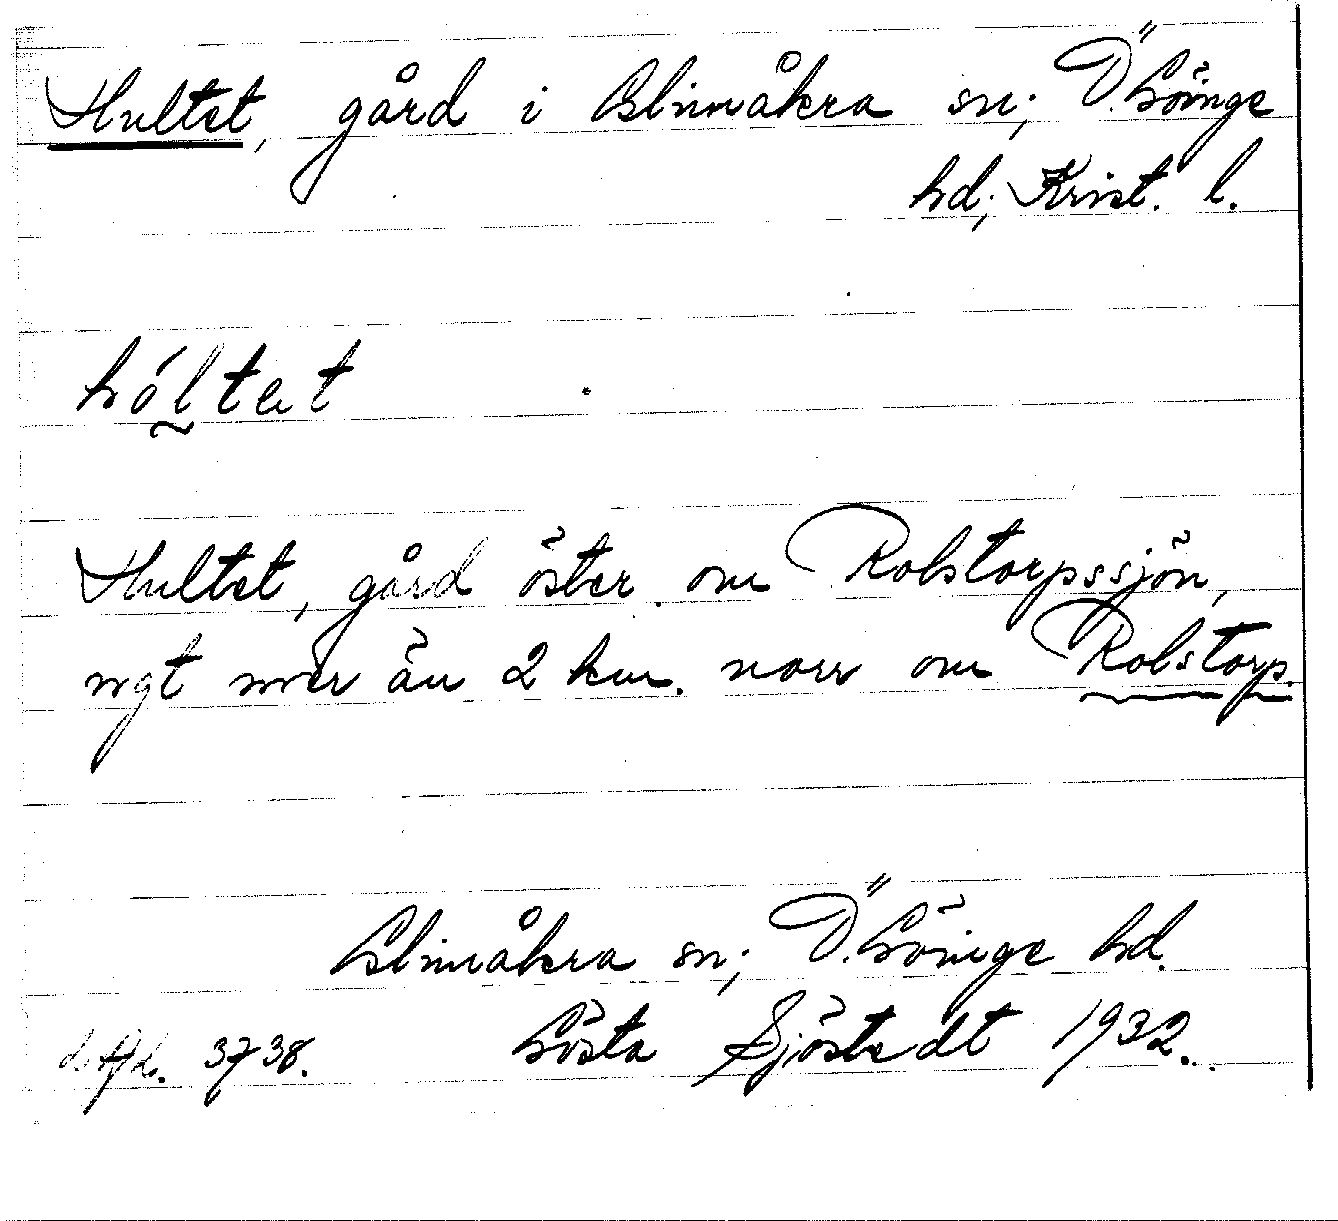 Hultet, gård i Glimåkra sn; Ö. Göinge
hd; Krist. l.
hóltet
Hultet, gård öster om Rolstorpssjön,
ngt mer än 2 km. norr om Rolstorp.
Glimåkra sn; Ö. Göinge hd.
3738. Gösta Sjöstedt 1932.